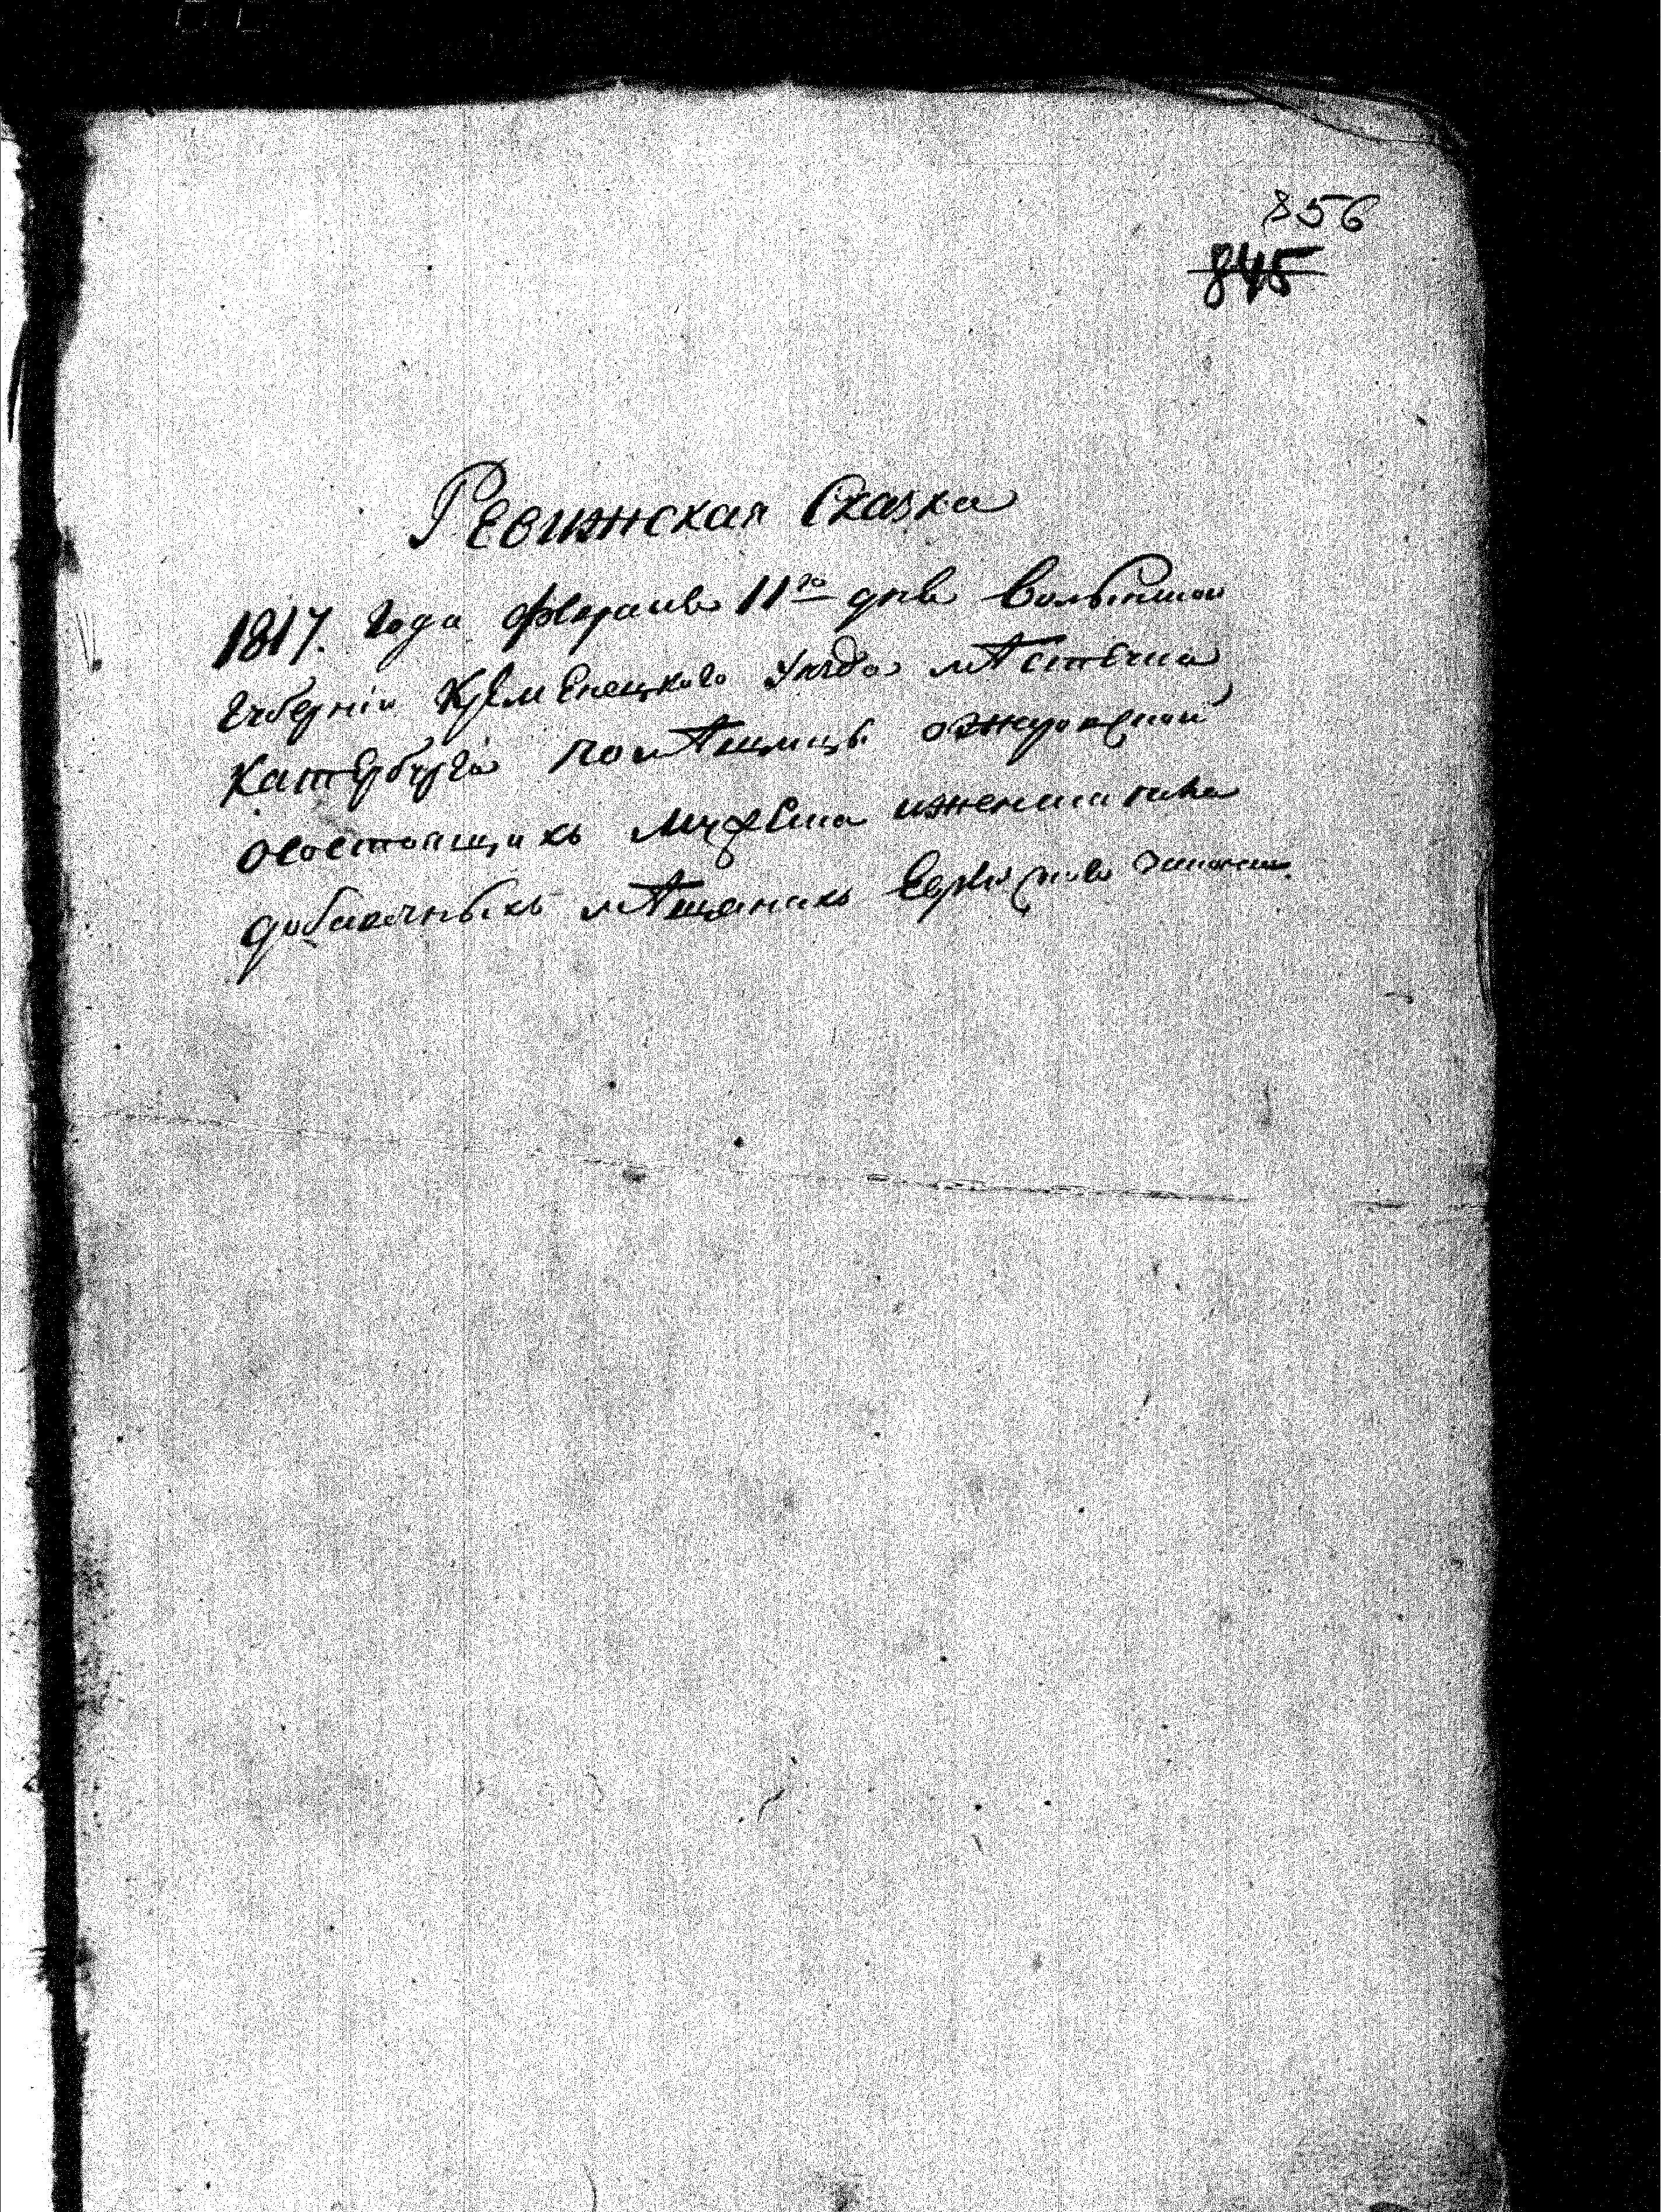 856
845
Ревижская Сказка
1817. Года февраля 11го дня Волынской
Губернiи Кременецкого Уезда мѣстечка
Катербурга помѣщицы ожаровской
осостоящихъ мужеска иженска пола
добавочныхъ мѣщанахъ Еврейскаго